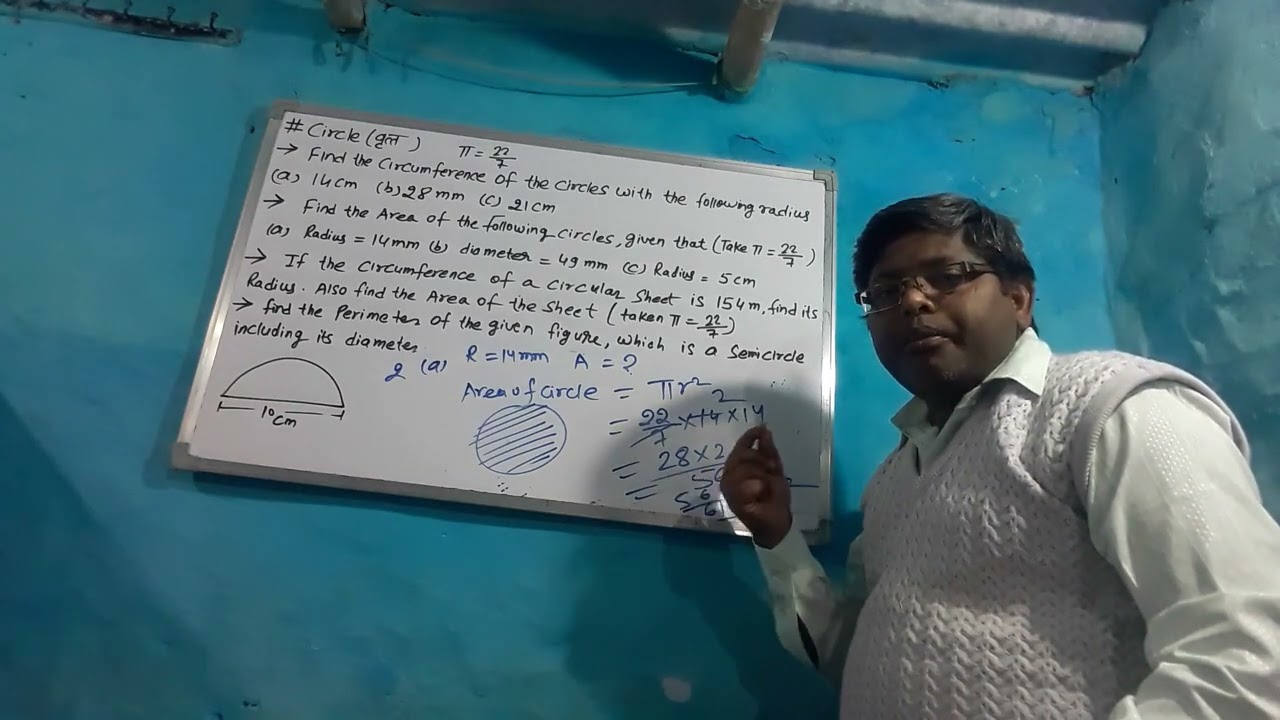 # Circle (वृत्त) π = 22/7
→ Find the Circumference of the Circles with the following radius
(a) 14cm (b) 28mm (c) 21cm
→ Find the Area of the following Circles, given that (Take π = 22/7)
(a) Radius = 14mm (b) diameter = 49mm (c) Radius = 5cm
→ If the Circumference of a Circular Sheet is 154m, find its
Radius. Also find the Area of the Sheet (taken π = 22/7)
→ find the Perimeter of the given figure, which is a Semicircle
including its diameter
10cm
2 (a) R = 14mm A = ?
Area of Circle = πr²
= 22/7 × 14 × 14 2
= 28 × 2